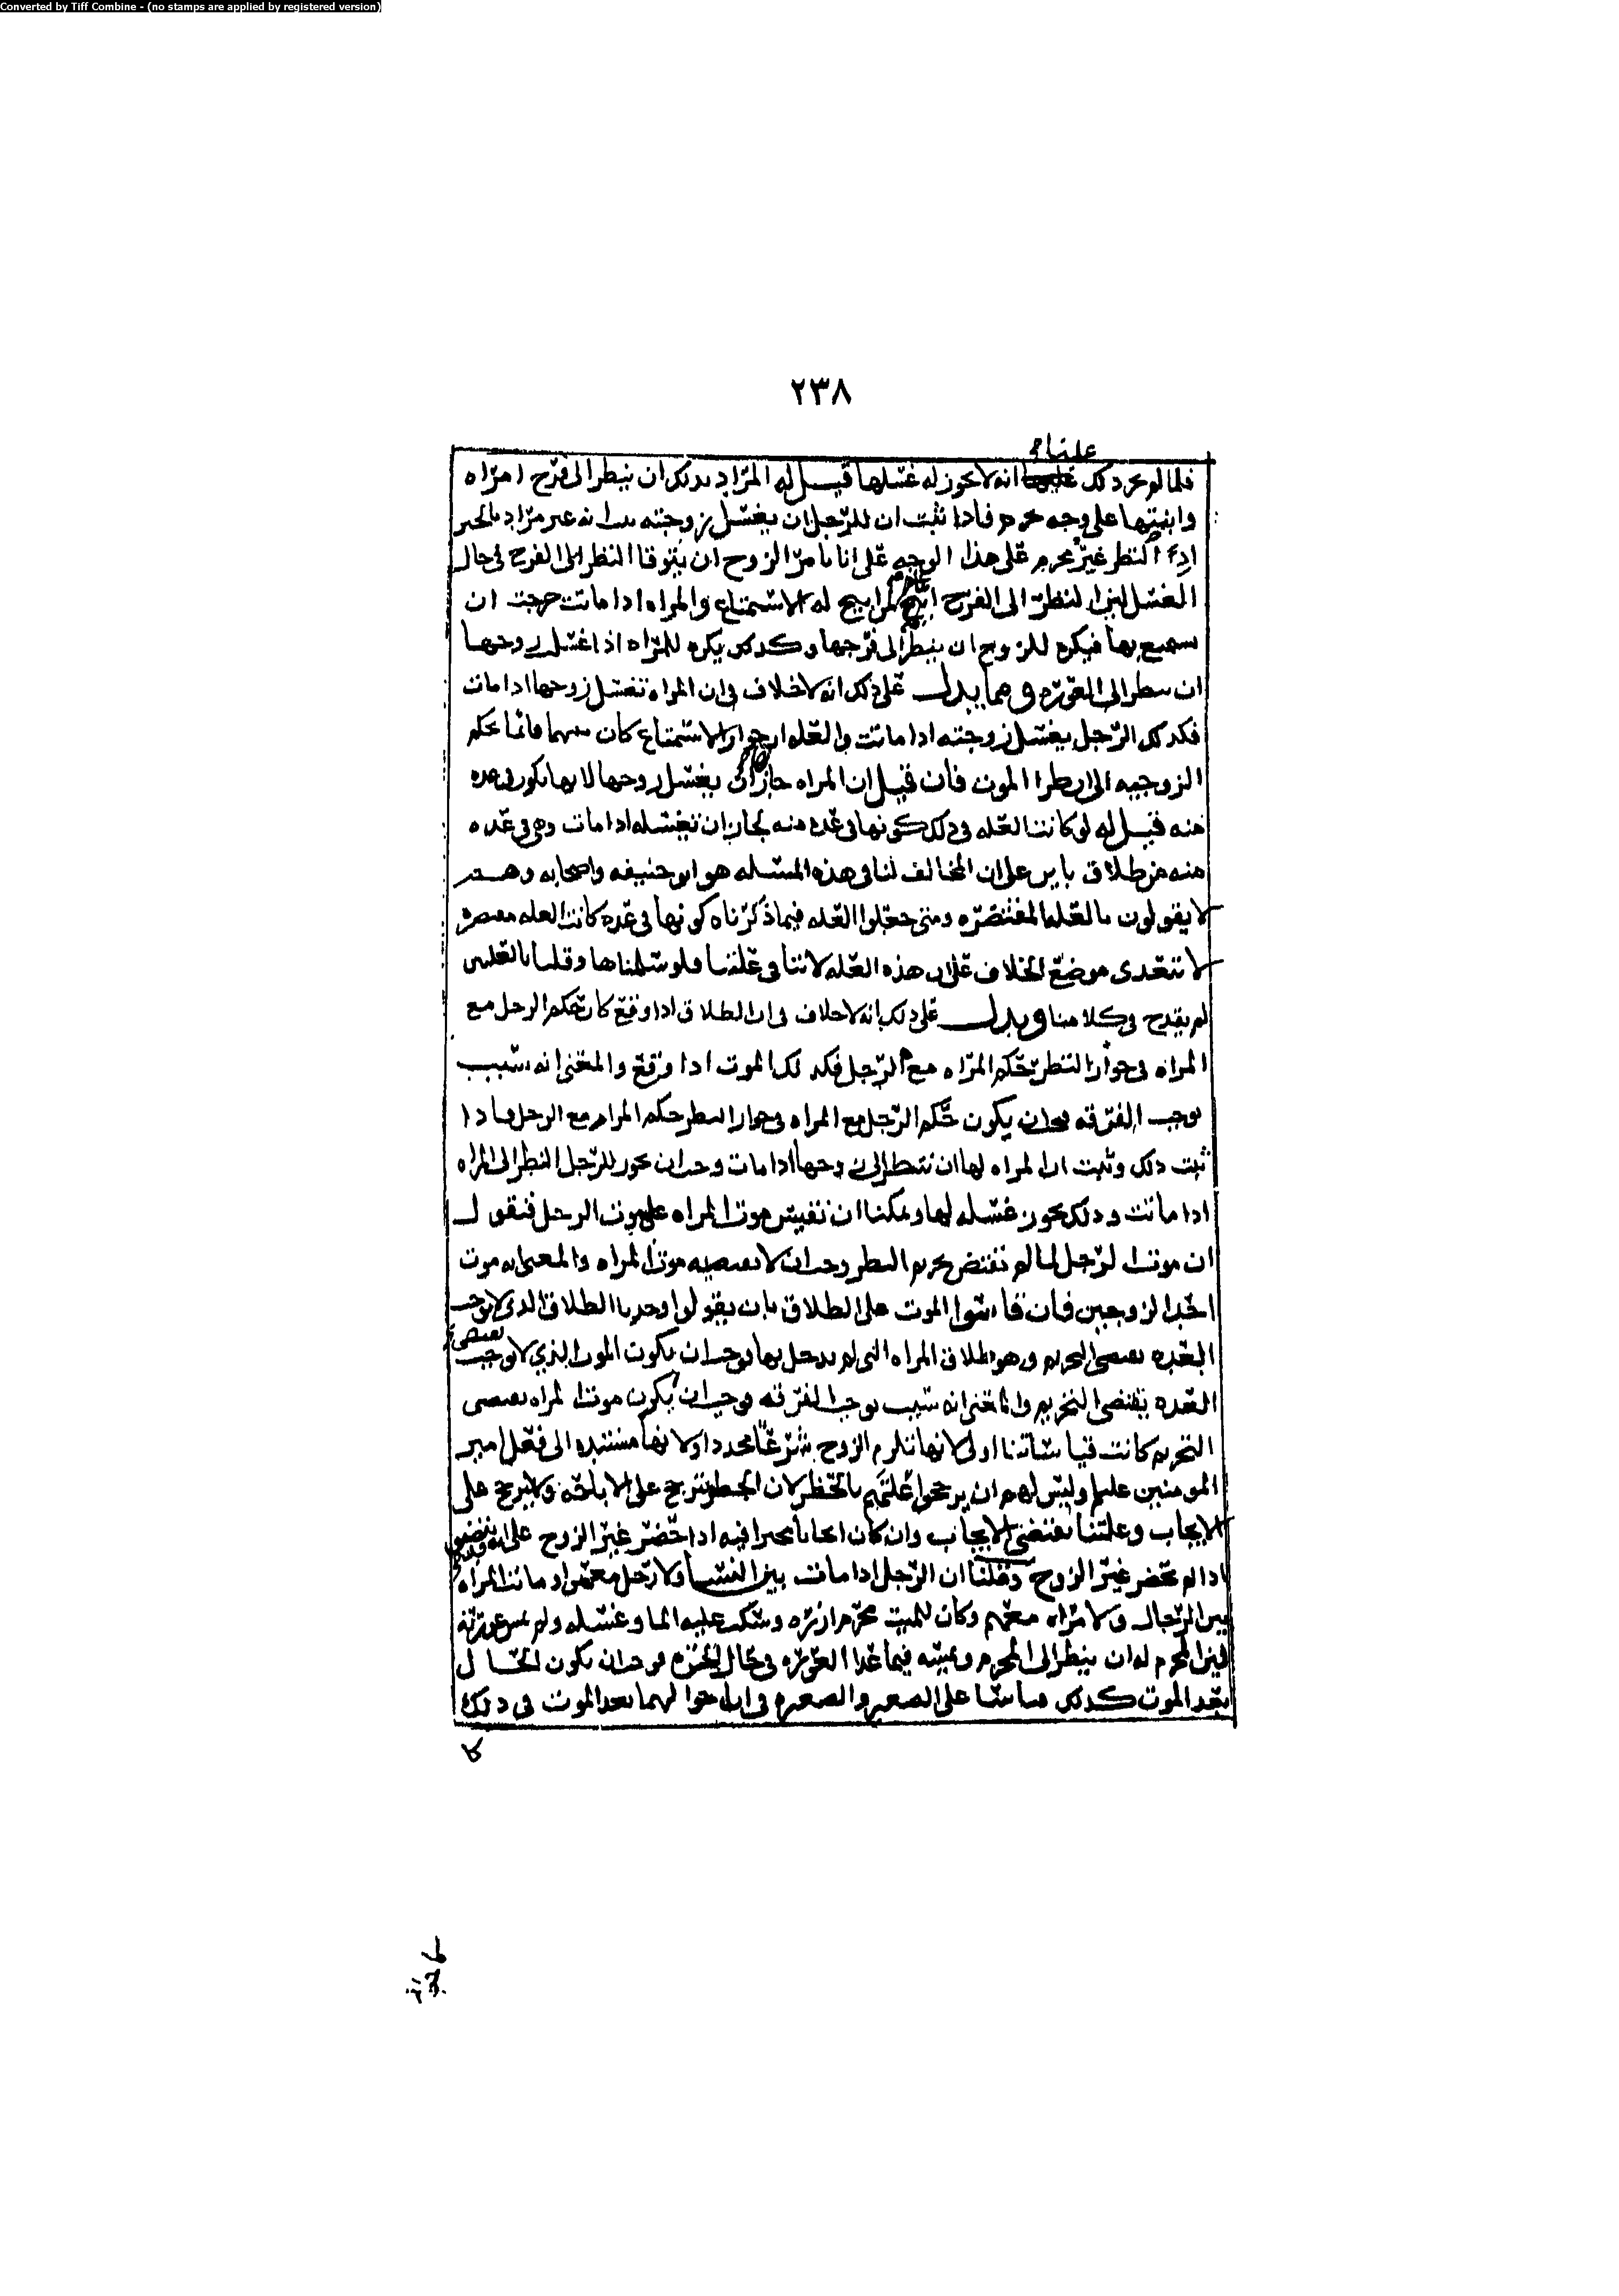 Converted by Tiff Combine - (no stamps are applied by registered version)
٢٣٨
علينا
فلما لم يحرم ذلك انه لا يجوز له غسلها قيل له المراد بذلك ان ينظر الى فرج امراه
وابنتها على وجه محرم فاذا ثبت ان للرجل ان يغسل زوجته بان انه غير مراد بالخبر
اذ النظر غير محرم على هذا الوجه على انا نامر الزوج ان يتوقا النظر الى الفرج في حال
الغسل لان النظر الى الفرج ابيح لمن ابيح له الاستمتاع والمراه اذا ماتت خرجت ان
يستمتع بها فيكره للزوج ان ينظر الى فرجها وكذلك يكره للمراه اذا غسلت زوجها
ان تنظر الى العوره ومما يدل على ذلك انه لا خلاف في ان المراه تغسل زوجها اذا مات
فكذلك الرجل يغسل زوجته اذا ماتت والعله ان جواز الاستمتاع كان بينهما قائما بحكم
الزوجيه الى ان طرا الموت فان قيل ان المراه جاز ان تغسل زوجها لانها تكون في عده
منه قيل له لو كانت العله في ذلك كونها في عده منه لجاز ان تغسله اذا مات وهي في عده
منه من طلاق باين على ان المخالف لنا في هذه المسله هو ابو حنيفه واصحابه وهم
لا يقولون بالعله المقتصره ومتى جعلوا العله فيما ذكرناه كونها في عده كانت العله مقتصره
لا تتعدى موضع الخلاف على ان هذه العله لا تنافي علتنا ولو سلمناها وقلنا بالعلتين
لم يقدح في كلامنا ويدل على ذلك انه لا خلاف في ان الطلاق اذا وقع كان حكم الرجل مع
المراه في جواز النظر حكم المراه مع الرجل فكذلك الموت اذا وقع والمعنى انه سبب
يوجب الفرقه فيجب ان يكون حكم الرجل مع المراه في جواز النظر حكم المراه مع الرجل فاذا
ثبت ذلك وثبت ان المراه لها ان تنظر الى زوجها اذا مات وجب ان يجوز للرجل النظر الى المراه
اذا ماتت وكذلك يجوز غسله لها ويمكننا ان نقيس موت المراه على موت الرجل فنقول
ان موت الرجل لما لم يقتض تحريم النظر وجب ان لا يقتضيه موت المراه والمعنى انه موت
احد الزوجين فان قاسوا الموت على الطلاق بان يقولوا وجدنا الطلاق الذي لا يوجب
العده يقتضي التحريم وهو طلاق المراه التي لم يدخل بها فوجب ان يكون الموت الذي لا يوجب
العده يقتضي التحريم والمعنى انه سبب يوجب الفرقه فوجب ان يكون موت المراه يقتضي
التحريم كانت قياساتنا اولى لانها تلزم الزوج شرعا مجددا ولانها مستنده الى فعل امير
المومنين علم وليس لهم ان يرجحوا علتهم بالحظر لان الحظر يترجح على الاباحه ولا يترجح على
الايجاب وعلتنا تقتضي الايجاب وان كان ايجابا مخيرا فيه اذا حضر غير الزوج على انه
اذا لم يحضر غير الزوج وقلنا ان الرجل اذا مات بين النسا ولا رجل معهن او ماتت المراه
بين الرجال ولا امراه معهم وكان للميت محرم ازره وسكب عليه الما وغسله ولم يمس عورته
لان المحرم له ان ينظر الى المحرم ويمسه فيما عدا العوره في حال الحيوه فوجب ان يكون الحال
بعد الموت كذلك قياسا على الصغير والصغيره في ان احوالهما بعد الموت في ذلك